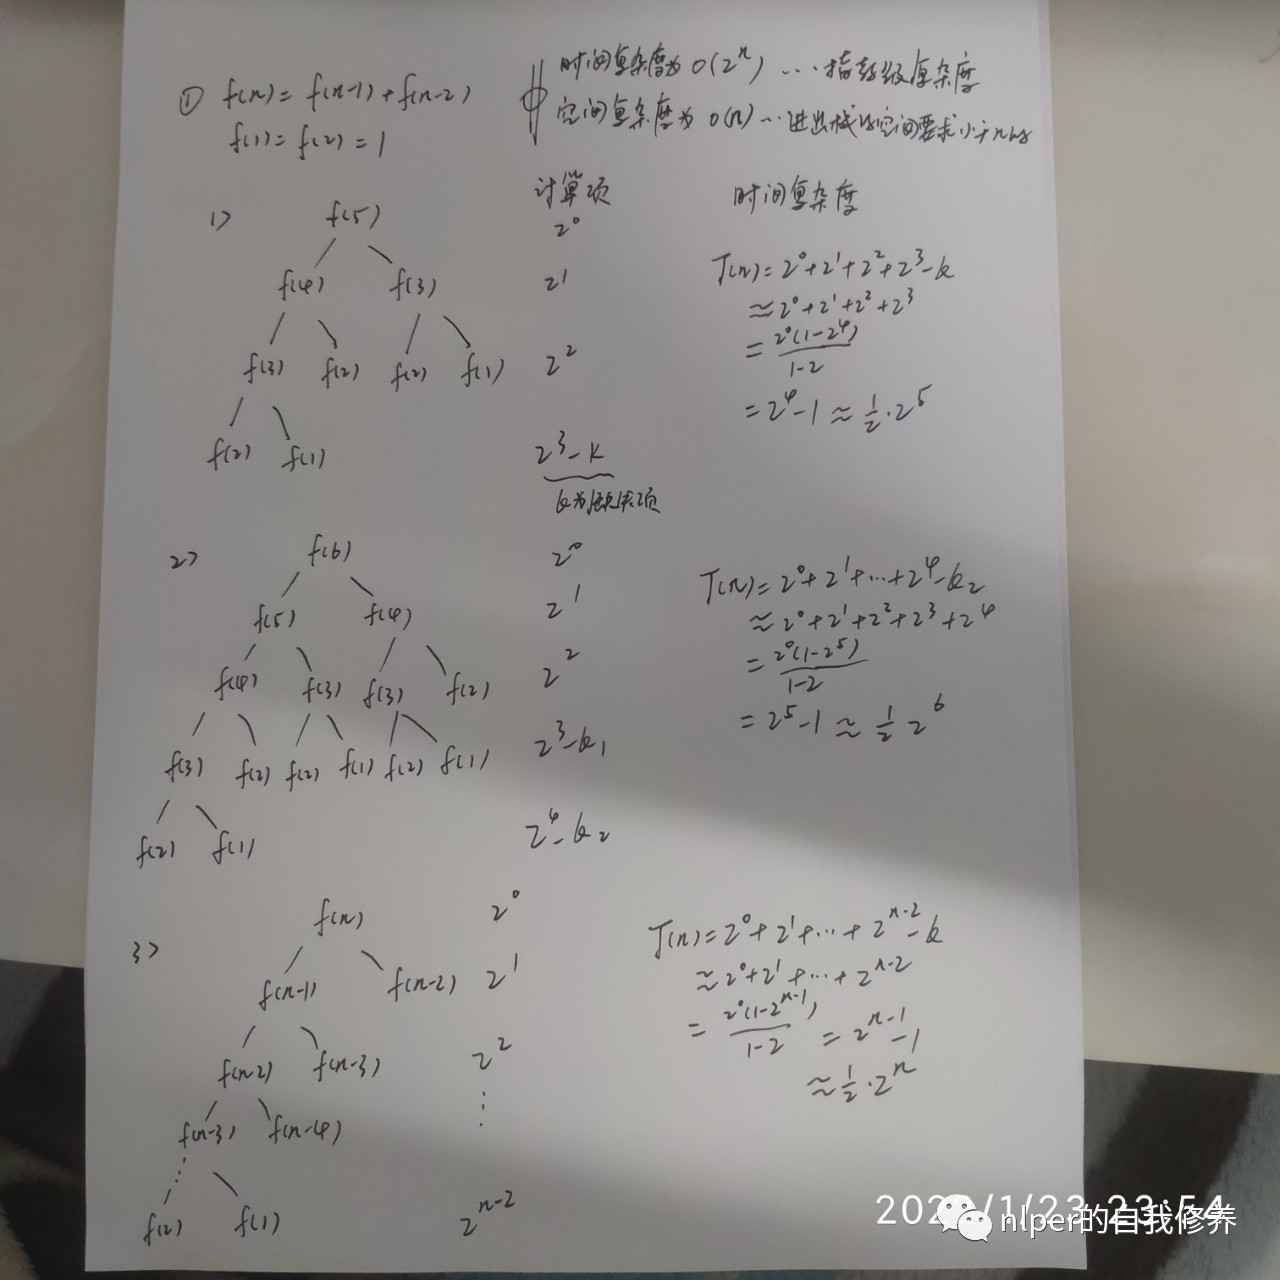 ① f(n) = f(n-1) + f(n-2)
f(1) = f(2) = 1
时间复杂度为 O(2ⁿ) … 指数级复杂度
空间复杂度为 O(n) … 进出栈的空间要求小于n
计算项
时间复杂度
1>
f(5)
2⁰
f(4) f(3)
2¹
f(3) f(2) f(2) f(1)
2²
f(2) f(1)
2³-k
k为缺失项
T(n) = 2⁰+2¹+2²+2³-k
≈ 2⁰+2¹+2²+2³
= 2⁰(1-2⁴)/1-2
= 2⁴-1 ≈ ½·2⁵
2>
f(6)
2⁰
f(5) f(4)
2¹
f(4) f(3) f(3) f(2)
2²
f(3) f(2) f(2) f(1) f(2) f(1)
2³-k₁
f(2) f(1)
2⁴-k₂
T(n) = 2⁰+2¹+…+2⁴-k₂
≈ 2⁰+2¹+2²+2³+2⁴
= 2⁰(1-2⁵)/1-2
= 2⁵-1 ≈ ½ 2⁶
3>
f(n)
2⁰
f(n-1) f(n-2)
2¹
f(n-2) f(n-3)
2²
f(n-3) f(n-4)
⋮
f(2) f(1)
2ⁿ⁻²
T(n) = 2⁰+2¹+…+2ⁿ⁻²-k
≈ 2⁰+2¹+…+2ⁿ⁻²
= 2⁰(1-2ⁿ⁻¹)/1-2 = 2ⁿ⁻¹-1
≈ ½·2ⁿ
/1/23 23:54
nlper的自我修养